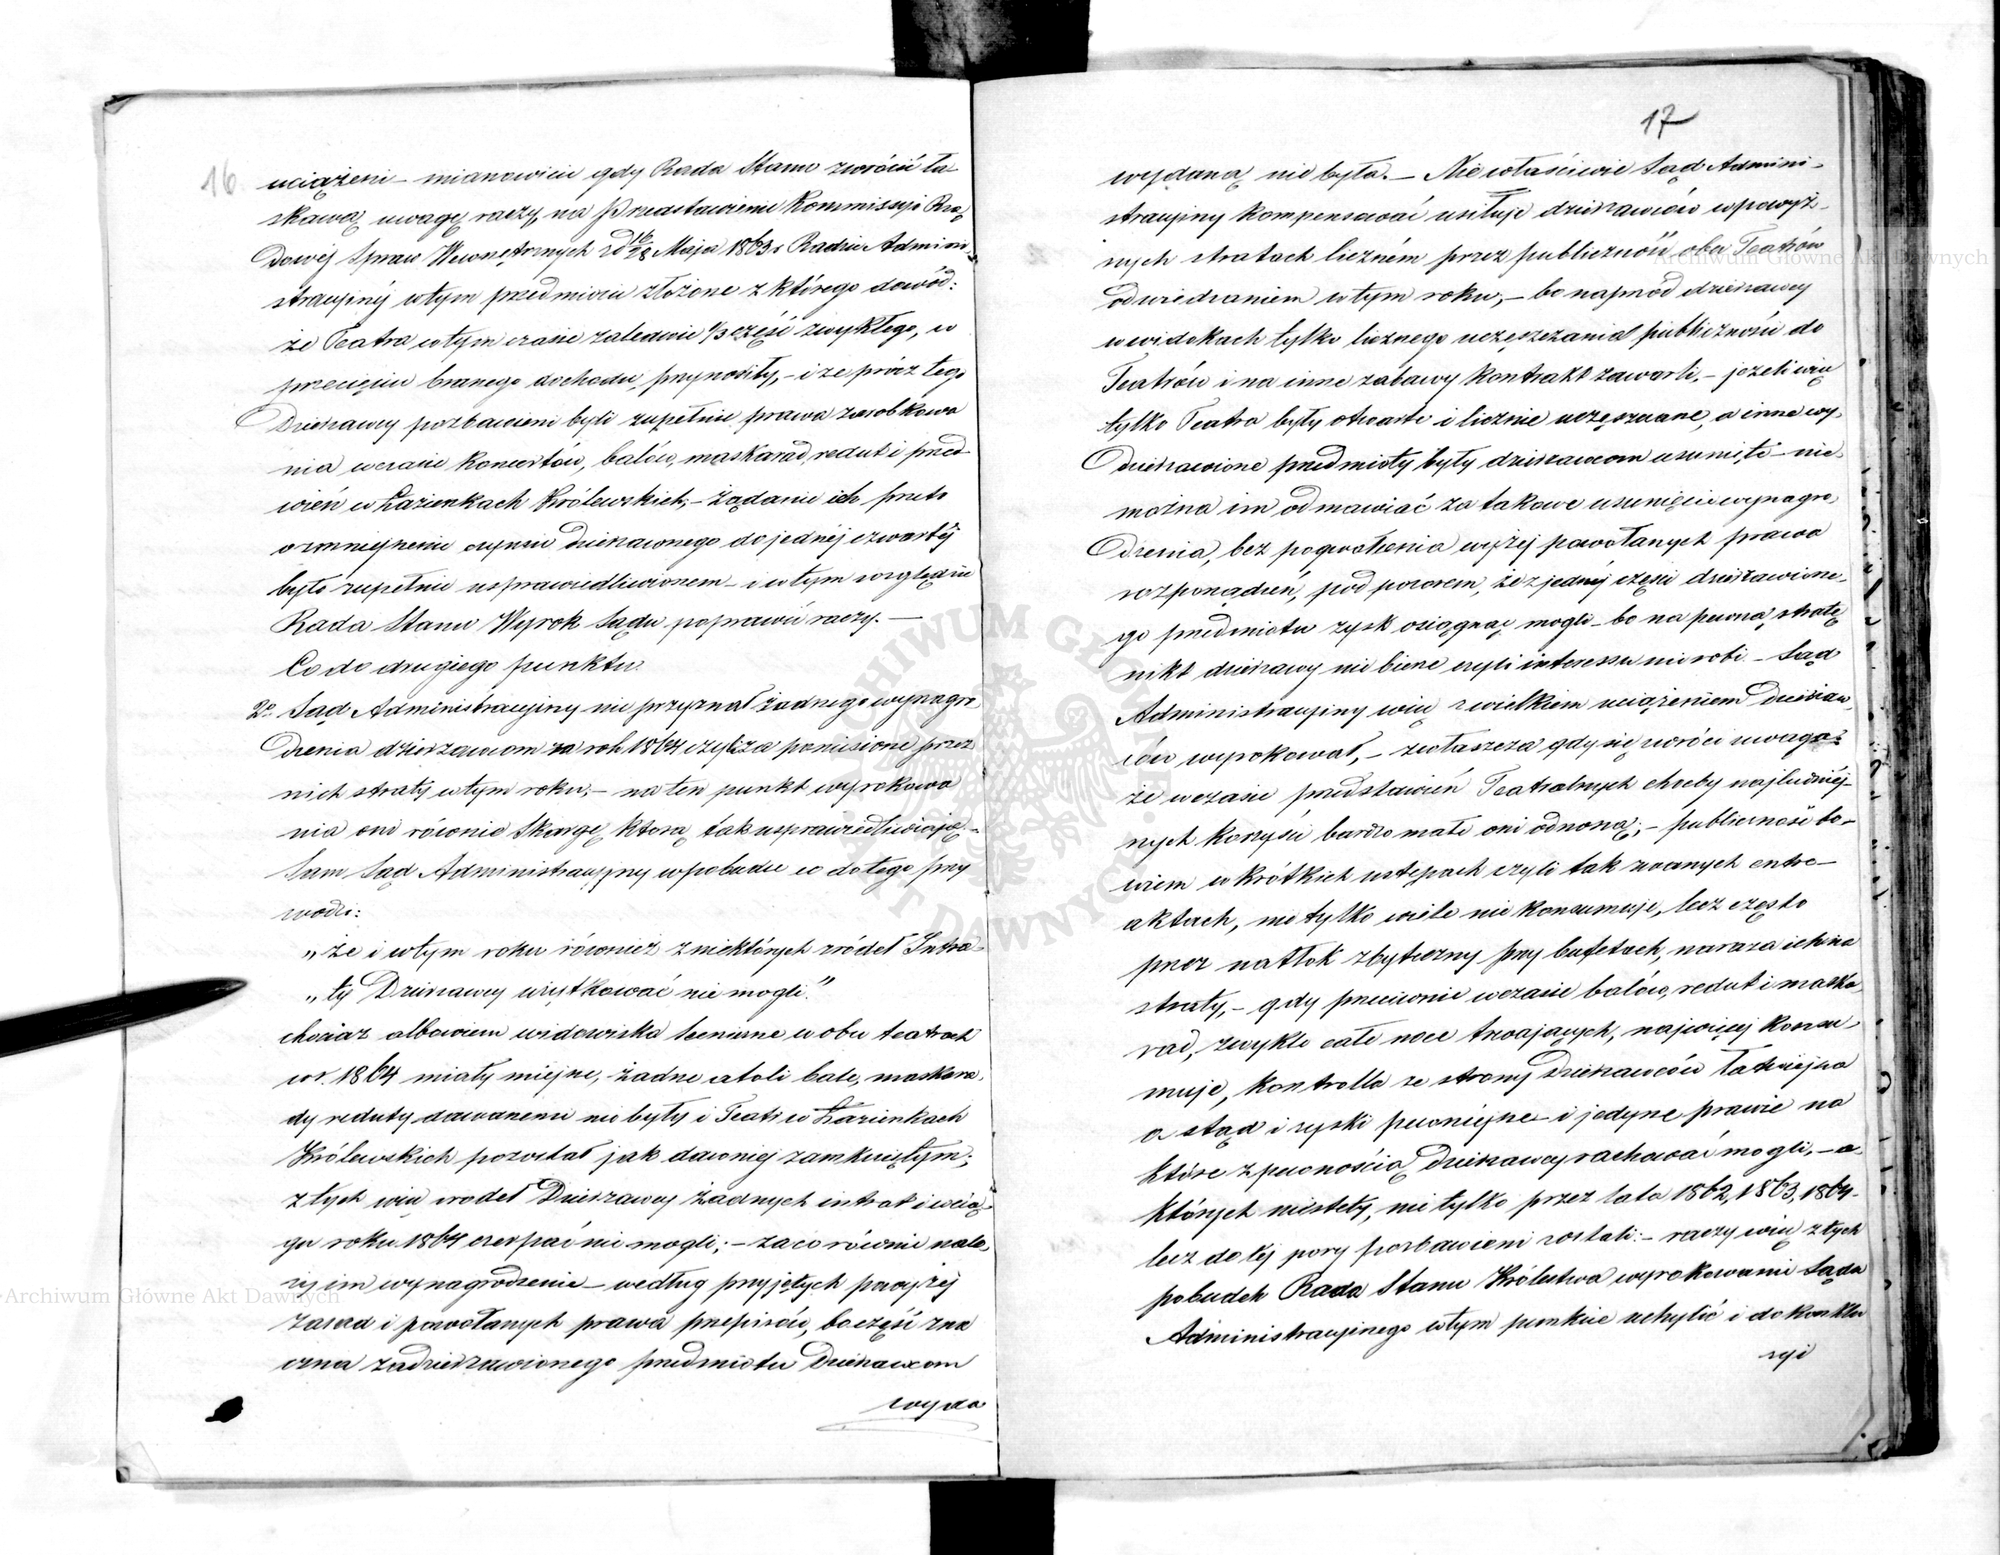 16
uciążeni – mianowicie gdy Rada Stanu zwrócić ła-
skawą uwagę raczy, na Przedstawienie Kommissyi Rzą
dowéj Spraw Wewnętrznych z d 16/28 Maja 1863 r Radzie Admini-
stracyjnéj w tym przedmiocie złożone z którego dowód:
że Teatra w tym czasie zaledwie 1/3 część zwykłego, w
przecięciu branego dochodu, przynosiły, – i że prócz tego
Dzierżawcy pozbawieni byli zupełnie prawa zarobkowa
nia w czasie koncertów, balów, maskarad, redut i przed
wień w Łazienkach Królewskich, – żądanie ich przeto
o zmniejszenie czynszu dzierżawnego do jednéj czwartéj
było zupełnie usprawiedliwionem – i w tym względzie
Rada Stanu Wyrok Sądu poprawić raczy. –
Co do drugiego punktu
2o Sąd Administracyjny nie przyznał żadnego wynagro
dzenia dzierżawcom za rok 1864 czyli za poniesione przez
nich straty w tym roku, – na ten punkt wyrokowa
nia oni równie skargę, którą tak usprawiedliwiają. –
Sam Sąd Administracyjny w pobudce co do tego przy
wodzi:
„że i w tym roku również z niektórych źródeł Intra-
„ty Dzierżawcy użytkować nie mogli."
chociaż albowiem widowiska sceniczne w obu teatrach
w r. 1864 miały miejsce, żadne atoli bale, maskara
dy reduty dawanemi nie były i Teatr w Łazienkach
Królewskich pozostał jak dawniej zamkniętym;
z tych więc źródeł Dzierżawcy żadnych intrat i w cią
gu roku 1864 czerpać nie mogli; – za co równie nale,
ży im wynagrodzenie – według przyjętych powyżéj
zasad i powołanych prawa przepisów, bo część zna
czna zadzierżawionego przedmiotu Dzierżawcom
wyda
17
wydaną nie była. – Niewłaściwie Sąd Admini-
stracyjny kompensować usiłuje dzierżawców w powyż-
szych stratach liczném przez publiczność obu Teatrów
odwiedzaniem w tym roku, – bo naprzód dzierżawcy
w widokach tylko licznego uczęszczania publiczności do
Teatrów i na inne zabawy kontrakt zawarli, – jeżeli więc
tylko Teatra były otwarte i licznie uczęszczane, a inne wy,
dzierżawione przedmioty były dzierżawcom usunięte – nie
można im odmawiać za takowe usunięcie wynagro,
dzenia, bez pogwałcenia wyżéj powołanych prawa
rozporządzeń, pod pozorem, że z jednéj części dzierżawione,
go przedmiotu zysk osiągnąć mogli – bo na pewną stratę
nikt dzierżawy nie bierze czyli interessu nie robi – Sąd
Administracyjny więc z wielkiem uciążeniem Dzierżaw
ców wyrokował, – zwłaszcza gdy się zwróci uwagę:
że w czasie przedstawień Teatralnych choćby najludniéj-
szych korzyści bardzo małe oni odnoszą; – publiczność bo-
wiem w krótkich ustępach czyli tak zwanych entre-
aktach, nie tylko wiele nie konsumuje, lecz często
przez natłok zbyteczny przy bufetach, naraża ich na
straty, – gdy przeciwnie w czasie balów, redut i maska,
rad, zwykle całe noce trwających, najwięcéj konsu,
muje, kontrolla ze strony Dzierżawców łatwiejsza
a stąd i zyski pewniejsze – i jedyne prawie na
które z pewnością Dzierżawcy rachować mogli, – a
których niestety, nie tylko przez lata 1862, 1863, 1864 –
lecz do téj pory pozbawieni zostali: – raczy więc z tych
pobudek Rada Stanu Królestwa wyrokowanie Sądu
Administracyjnego w tym punkcie uchylić i do konklu
zyi
Archiwum Główne Akt Dawnych
Archiwum Główne Akt Dawnych
ARCHIWUM GŁÓWNE AKT DAWNYCH